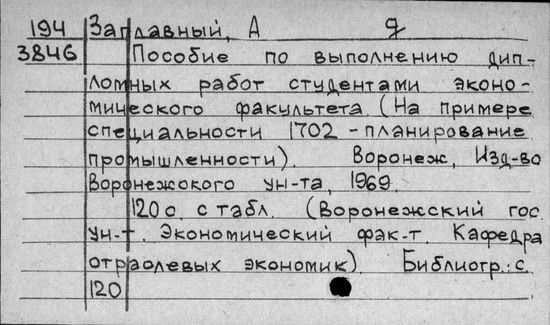 194 Заглавный, А g
3846 Пособие по выполнению дип-
ломных работ студентами эконо-
мического факультета. (На примере
специальности 1702 - планирование
промышленности). Воронеж, Изд-во
Воронежокого ун-та, 1969.
120 с. с табл. (Воронежский гос.
ун-т. Экономический фак-т. Кафедра
отраолевых экономик) Библиогр: с.
120